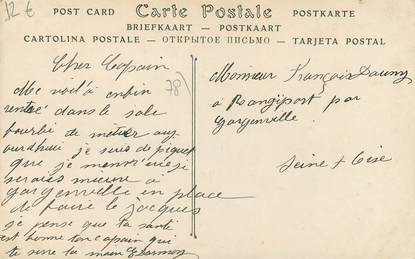 12 €
POST CARD Carte Postale POSTKARTE
BRIEFKAART — POSTKAART
CARTOLINA POSTALE — ОТКРЫТОЕ ПИСЬМО — TARJETA POSTAL
Cher Copain
Me voilà enfin
rentré dans le sale
fourbi de métier auj
ourdhui je suis de piquet
que je menn'uie si
serais mieux à
gargenville en place
de faire le jacques
je pense que ta santé
est bonne ton copain qui
te serre la main
78)
Monsieur François
à Rangiport par
Gargenville
Seine & Oise